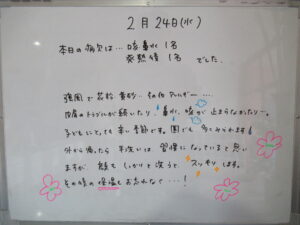 2月24日(水)
本日の病欠は… 咳鼻水1名
発熱他 1名 でした.
強風で 花粉 黄砂… その他 アレルギー….
皮膚のトラブルが続いたり、鼻水、咳が止まらなかったり…。
子どもにとっても 辛い季節です。園でも 多くみられます!
外から帰ったら 手洗いは 習慣になっていると思い
ますが、顔も しっかりと洗うと、スッキリ します。
その後の 保湿も お忘れなく…!